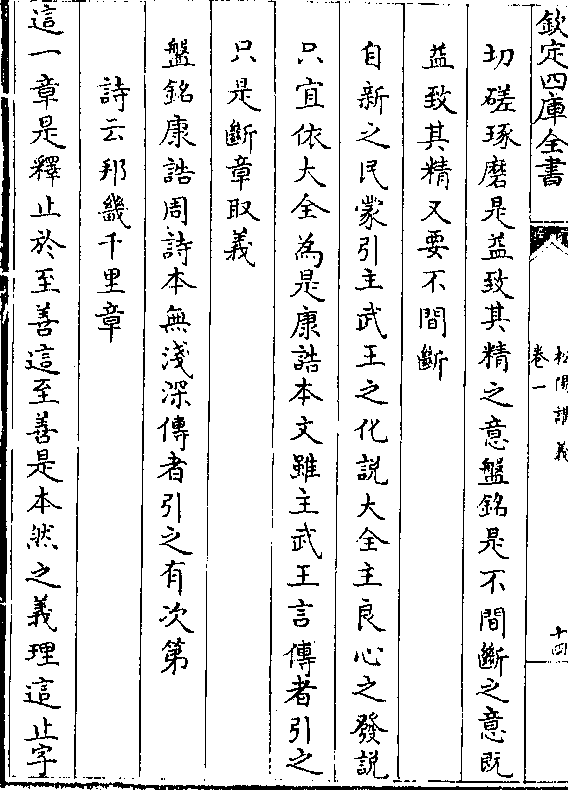 欽定四庫全書
松陽講義
卷一
十四
切磋琢磨是益致其精之意盤銘是不間斷之意既
益致其精又要不間斷
自新之民蒙引主武王之化說大全主良心之發說
只宜依大全為是康誥本文雖主武王言傳者引之
只是斷章取義
盤銘康誥周詩本無淺深傳者引之有次第
詩云邦畿千里章
這一章是釋止於至善這至善是本然之義理這止字